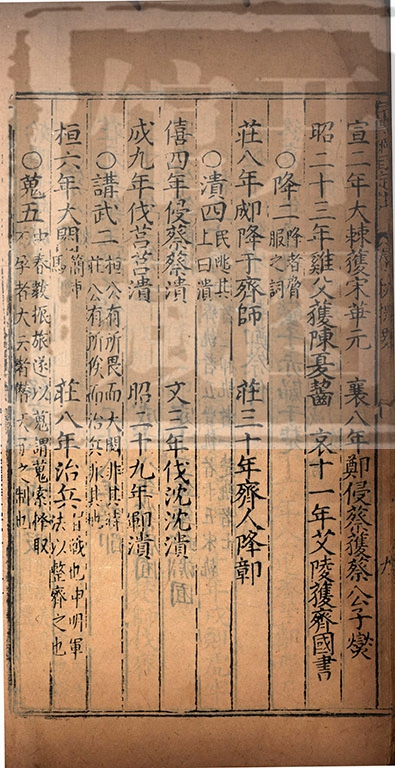 宣二年大棘獲宋華元　襄八年鄭侵蔡獲蔡公子燮
昭二十三年雞父獲陳夏齧　哀十一年艾陵獲齊國書
○降二降者脅服之詞
莊八年郕降于齊師　莊三十年齊人降鄣
○潰四民逃其上曰潰
僖四年侵蔡蔡潰　文三年伐沈沈潰
成九年伐莒莒潰　昭二十九年鄆潰
○講武二桓公有所畏而大閱非其時莊公有所俟而治兵非其地
桓六年大閱簡車馬　莊八年治兵習戰也申明軍法以整齊之也
○蒐五中春教振旅遂以蒐謂蒐索擇取不孕者